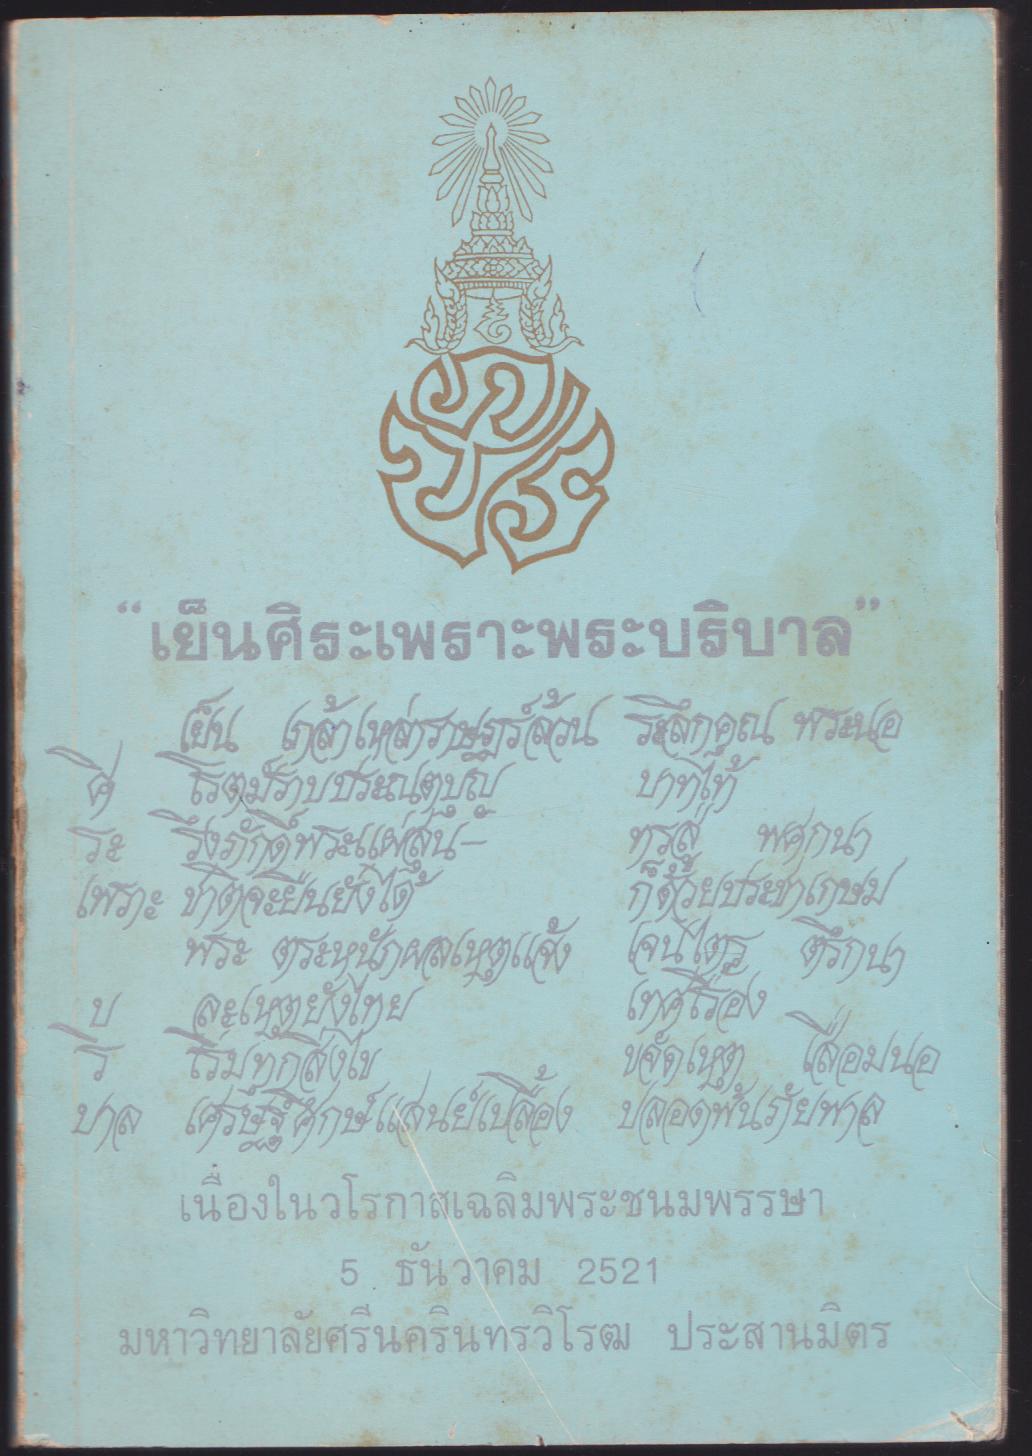 “เย็นศิระเพราะพระบริบาล”
เย็น เกล้าเหล่าราษฎร์ล้วน ระลึกคุณ พระนอ
ศิ โรตม์ราบประณตบุญ บาทไท้
ระ วังภักดิ์พระแผ่สุน- ทรสู่ พศกนา
เพราะ ชาติจะยืนยังได้ ก็ด้วยประชาเกษม
พระ ตระหนักผลเหตุแจ้ง เจนไตร ตรึกนา
บ ละเหตุยังไทย เทศร้อง
ริ เริ่มทักสิ่งไข ขจัดเหตุ เสื่อมนอ
บาล เศรษฐ์ศึกษ์แสนย์เปลื้อง ปลอดพ้นภัยพาล
เนื่องในวโรกาสเฉลิมพระชนมพรรษา
5 ธันวาคม 2521
มหาวิทยาลัยศรีนครินทรวิโรฒ ประสานมิตร